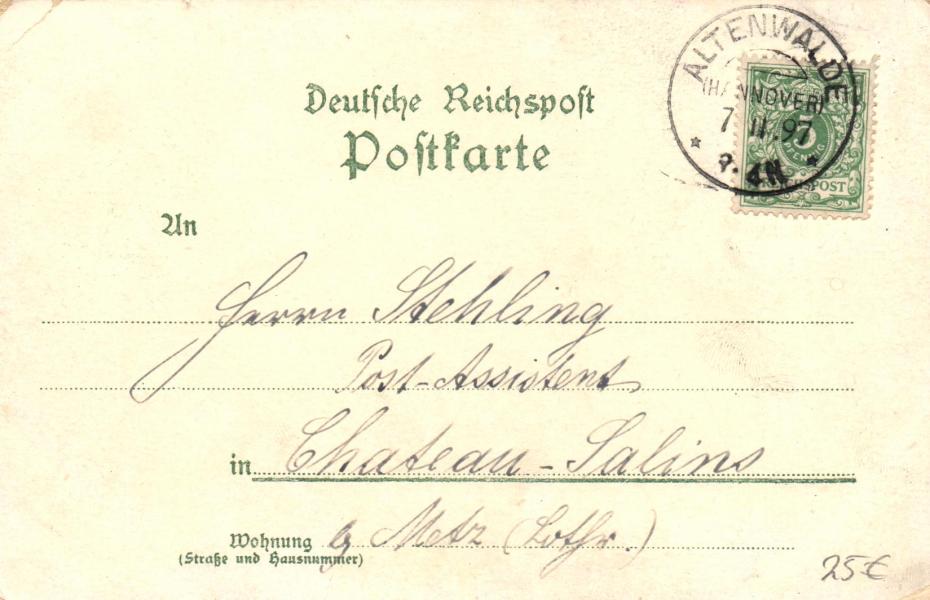 ALTENWALDE
(HANNOVER)
7 11.97
4N
5
PFENNIG
REICHSPOST
Deutsche Reichspost
Postkarte
An
Herrn Stehling
Post-Assistent
in Chateau-Salins
Wohnung b/ Metz (Lothr.)
(Straße und Hausnummer)
25 €